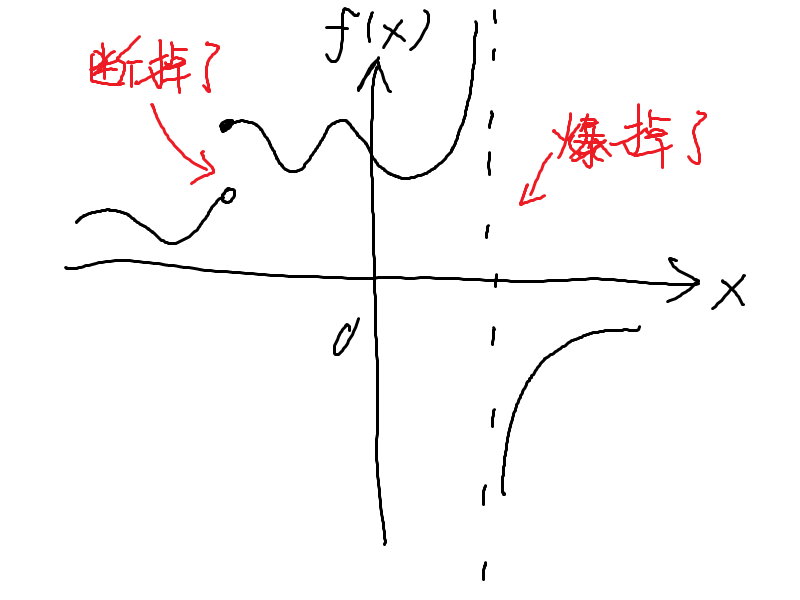 f(x)
断掉了
爆掉了
x
0